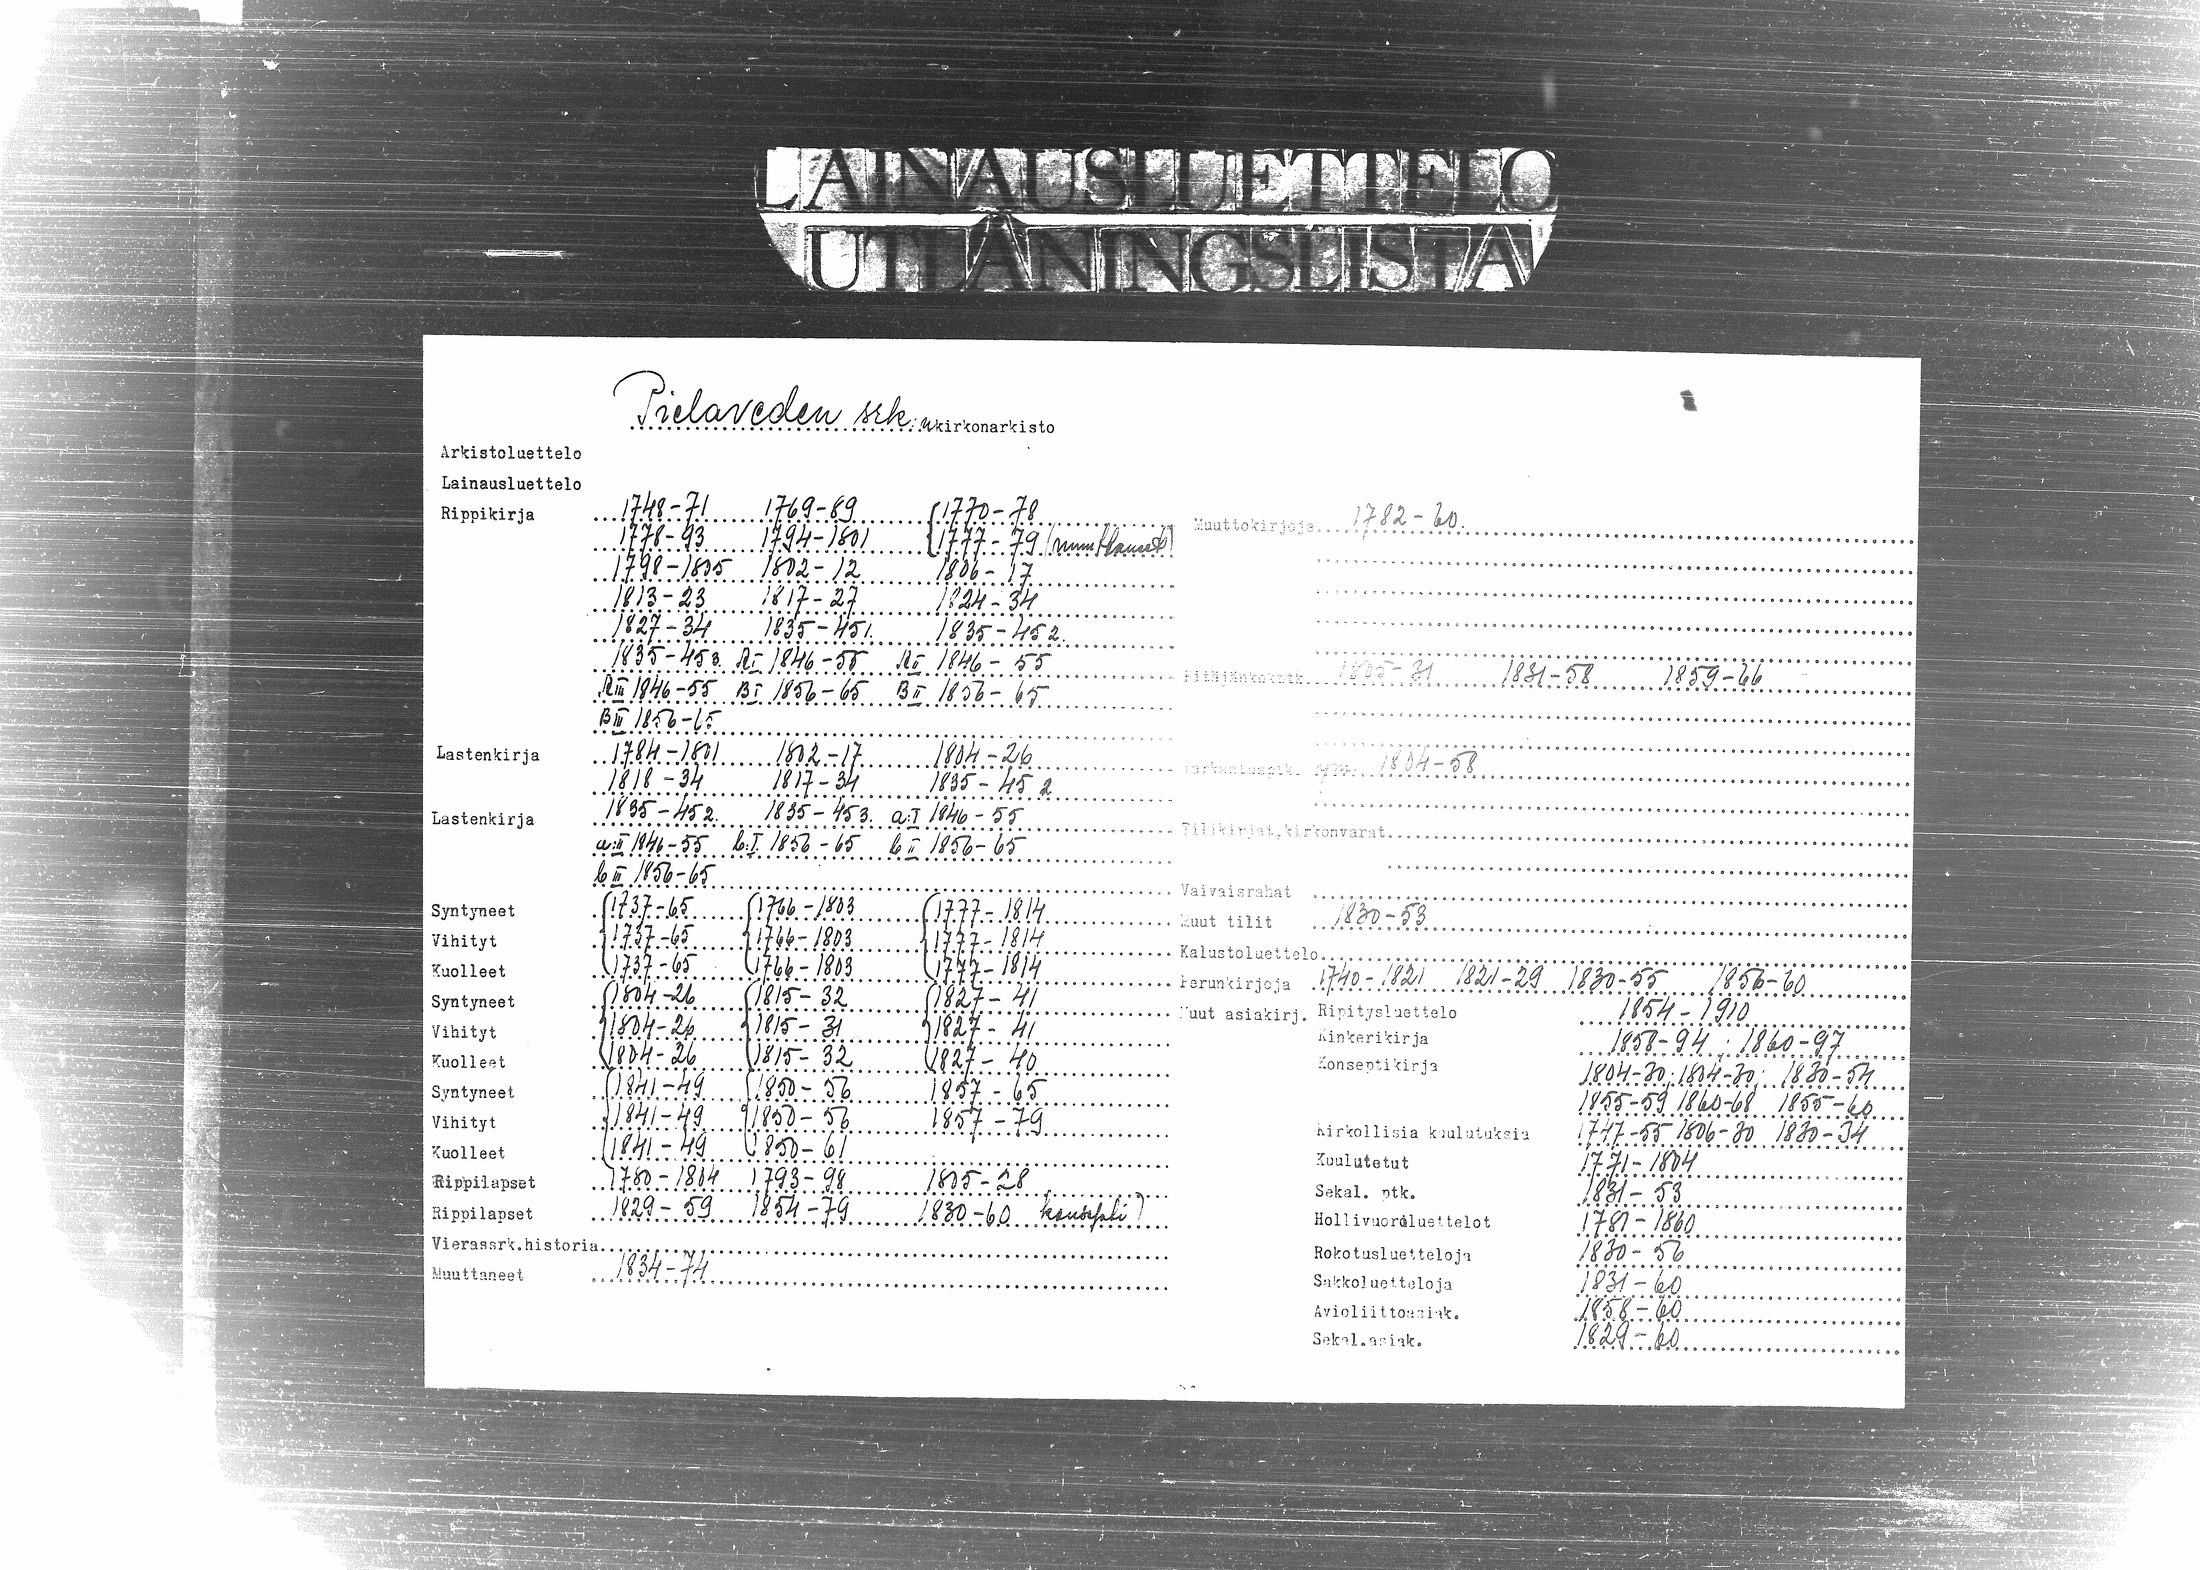 LAINAUSLUETTELO
UTLÅNINGSLISTA
Pielaveden srk:n kirkonarkisto
Arkistoluettelo
Lainausluettelo
Rippikirja 1748-71 1769-89 1770-78
1778-93 1794-1801 1777-79
1798-1805 1802-12 1806-17
1813-23 1817-27 1824-34
1827-34 1835-45 1. 1835-45 2.
1835-45 3. AI 1846-55 AII 1846-55
AIII 1846-55 BI 1856-65 BII 1856-65
BIII 1856-65
Lastenkirja 1784-1801 1802-17 1804-26
1818-34 1817-34 1835-45 2
Lastenkirja 1835-45 2. 1835-45 3. a:I 1846-55
a:II 1846-55 b:I 1856-65 b II 1856-65
b III 1856-65
Syntyneet 1737-65 1766-1803 1777-1814
Vihityt 1737-65 1766-1803 1777-1814
Kuolleet 1737-65 1766-1803 1777-1814
Syntyneet 1804-26 1815-32 1827-41
Vihityt 1804-26 1815-31 1827-41
Kuolleet 1804-26 1815-32 1827-40
Syntyneet 1841-49 1850-56 1857-65
Vihityt 1841-49 1850-56 1857-79
Kuolleet 1841-49 1850-61
Rippilapset 1780-1804 1793-98 1805-28
Rippilapset 1829-59 1854-79 1830-60
Vierassrk.historia
Muuttaneet 1834-74
Muuttokirjoja 1782-60.
Pitäjänkokptk. 1805-31 1831-58 1859-66
Tarkastusptk. 1804-58
Tilikirjat,kirkonvarat
Vaivaisrahat
Muut tilit 1830-53
Kalustoluettelo
Perunkirjoja 1740-1821 1821-29 1830-55 1856-60
Muut asiakirj. Ripitysluettelo 1854-1910
Kinkerikirja 1858-94; 1860-97
Konseptikirja 1804-30; 1804-30; 1830-54
1855-59 1860-68 1855-60
Kirkollisia kuulutuksia 1747-55 1806-30 1830-34
Kuulutetut 1771-1804
Sekal. ptk. 1831-53
Hollivuoroluettelot 1781-1860
Rokotusluetteloja 1830-56
Sakkoluetteloja 1831-60
Avioliittoasiak. 1858-60
Sekal.asiak. 1829-60